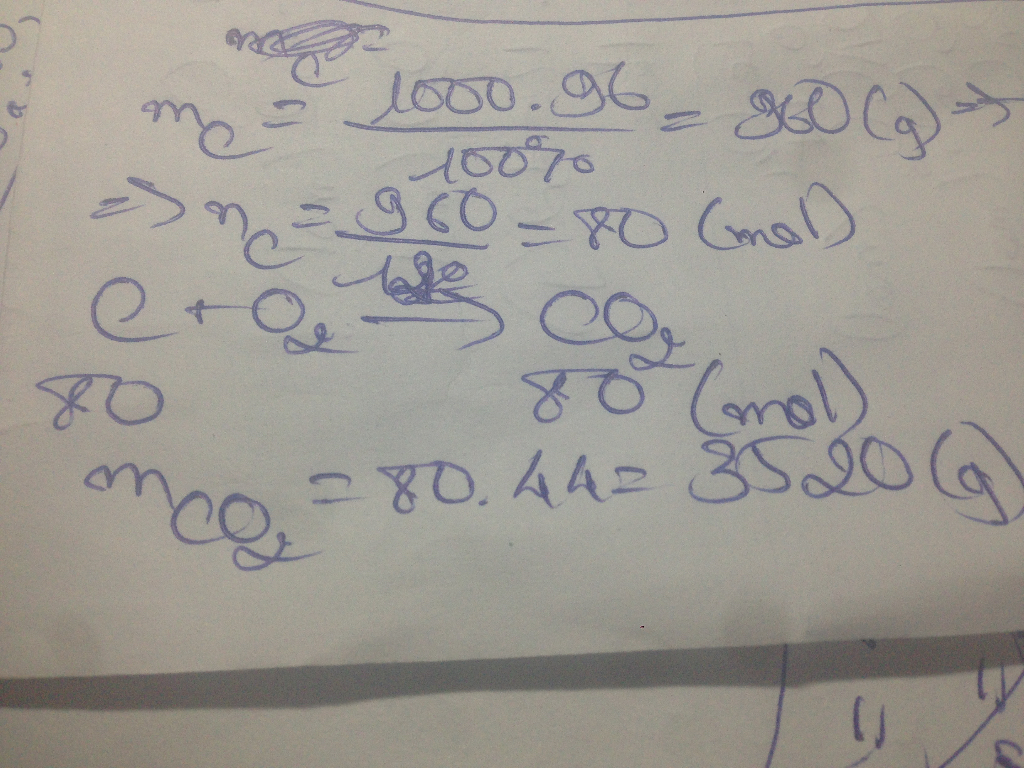 m_C = 1000.96 / 100% = 960 (g) =>
=> n_C = 960 / 12 = 80 (mol)
C + O₂ → CO₂
80 80 (mol)
m_CO₂ = 80.44 = 3520 (g)